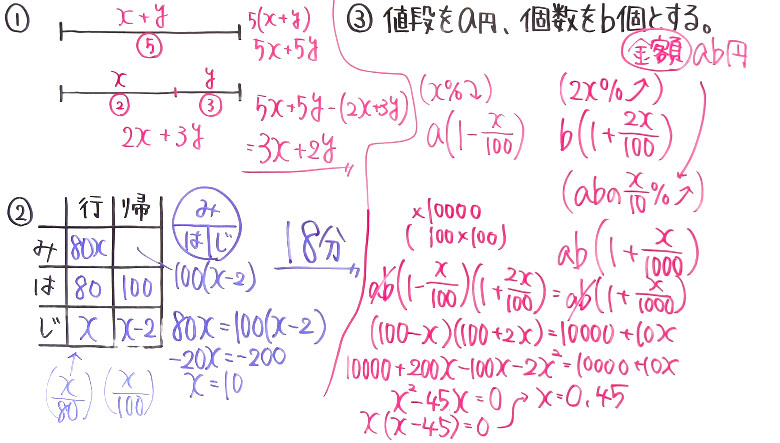 ①
x+y
⑤
5(x+y)
5x+5y
x y
② ③
2x+3y
5x+5y-(2x+3y)
=3x+2y
②
行 帰
み 80x
は 80 100
じ x x-2
み
は じ
100(x-2)
18分
80x=100(x-2)
-20x=-200
x=10
(x/80) (x/100)
③ 値段をa円、個数をb個とする。
金額 ab円
(x%↓) (2x%↗)
a(1-x/100) b(1+2x/100)
(abのx/10%↗)
×10000
(100×100)
ab(1+x/1000)
ab(1-x/100)(1+2x/100)=ab(1+x/1000)
(100-x)(100+2x)=10000+10x
10000+200x-100x-2x²=10000+10x
x²-45x=0
x(x-45)=0
x=0,45